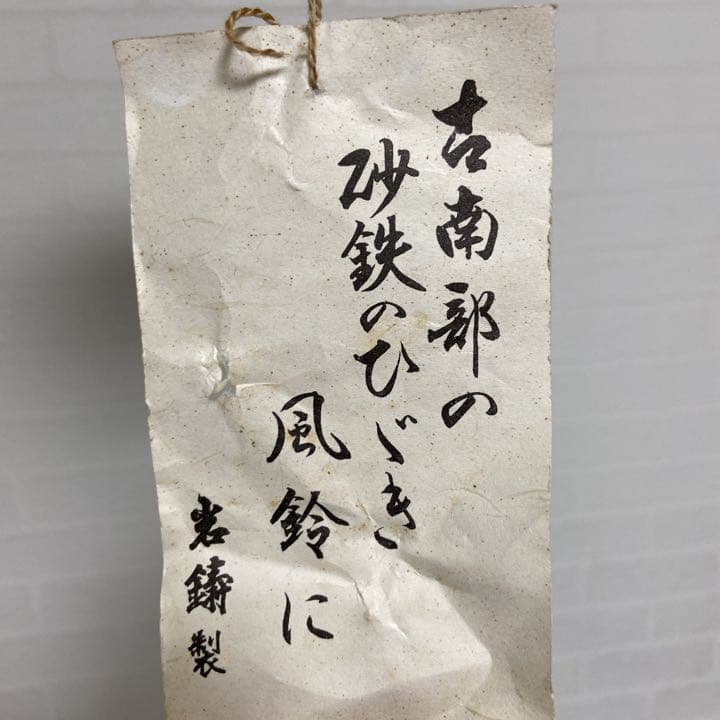 古南部の
砂鉄のひゞき
風鈴に
岩鋳製